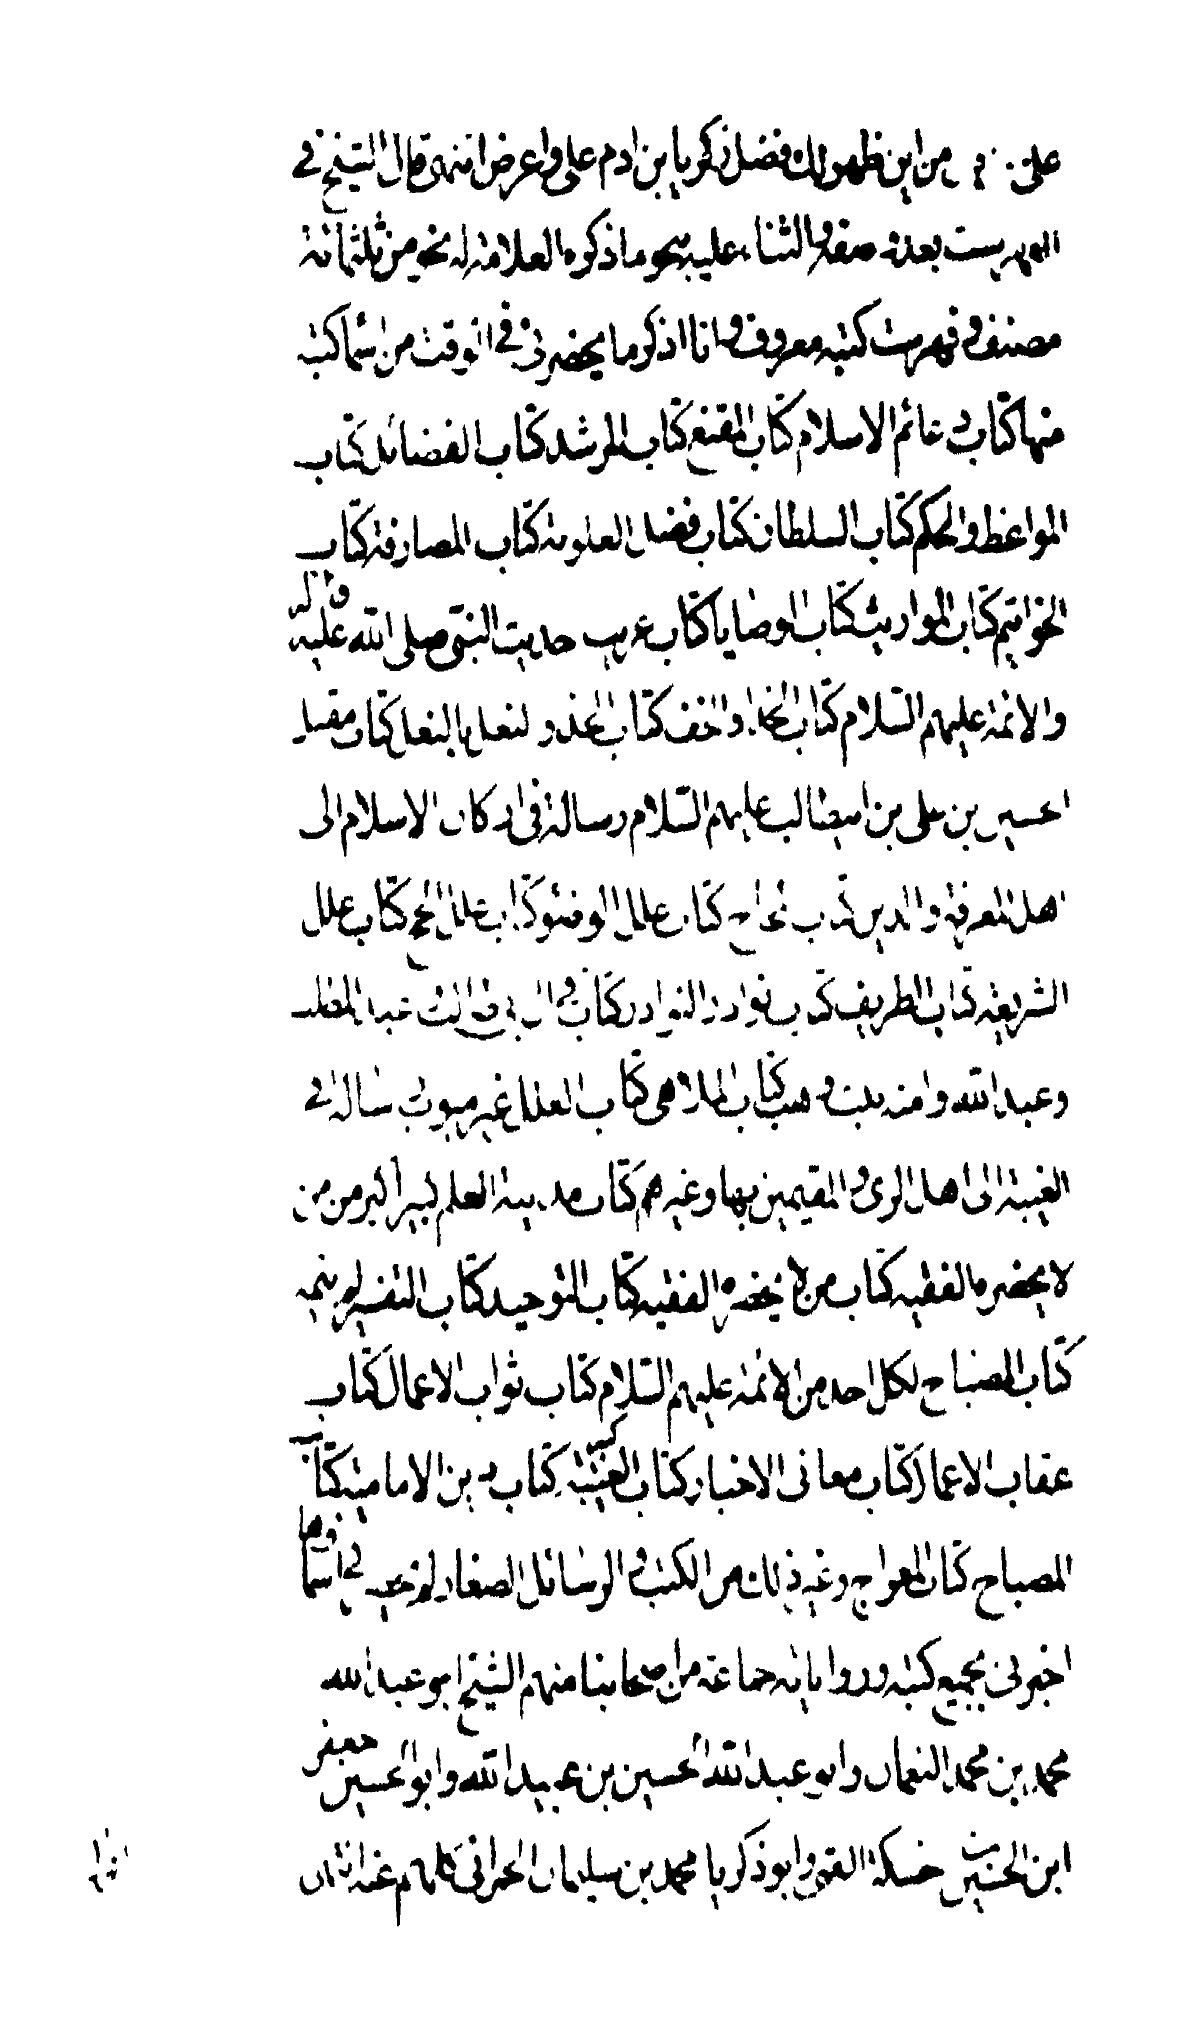 على من اين ظهر لك فضل زكريا بن ادم على واعرض انتهى قال الشيخ في
الفهرست بعد صفة والثناء عليه بنحو ما ذكره العلامة له نحو من ثلثمائة
مصنف وفهرست كتبه معروف وانا اذكر ما يحضرني في الوقت من اسماء كتبه
منها كتاب دعائم الاسلام كتاب المقنع كتاب المرشد كتاب الفضائل كتاب
المواعظ والحكم كتاب السلطان كتاب فضل العلوية كتاب المصادقة كتاب
الخواتيم كتاب المواريث كتاب الوصايا كتاب غريب حديث النبي صلى الله عليه واله
والائمة عليهم السلام كتاب الحذاء والخف كتاب الحذو النعل بالنعل كتاب مقتل
الحسين بن على بن ابيطالب عليهم السلام رسالة في اركان الاسلام الى
اهل المعرفة والدين كتاب علل الوضوء كتاب علل الحج كتاب علل
الشريعة كتاب الطرايف كتاب نوادر النوادر كتاب في ابي طالب عبد المطلب
وعبد الله وامنه بنت وهب كتاب الملاهى كتاب العلل غير مبوب رسالة في
الغيبة الى اهل الرى والمقيمين بها وغيرهم كتاب مدينة العلم اكبر من من
لا يحضره الفقيه كتاب من لا يحضره الفقيه كتاب التوحيد كتاب التفسير لم يتمه
كتاب المصباح لكل احد من الائمة عليهم السلام كتاب ثواب الاعمال كتاب
عقاب الاعمال كتاب معانى الاخبار كتاب الغيبة كبير كتاب دين الامامية كتاب
المصباح كتاب المعراج وغير ذلك من الكتب والرسائل الصغار لم يحضرني اسماؤها
اخبرني بجميع كتبه ورواياته جماعة من اصحابنا منهم الشيخ ابو عبد الله
محمد بن محمد النعمان وابو عبد الله الحسين بن عبيد الله وابو الحسين جعفر
ابن الحسن بن حسكة القمى وابو زكريا محمد بن سليمان الحمرانى كلهم عنه